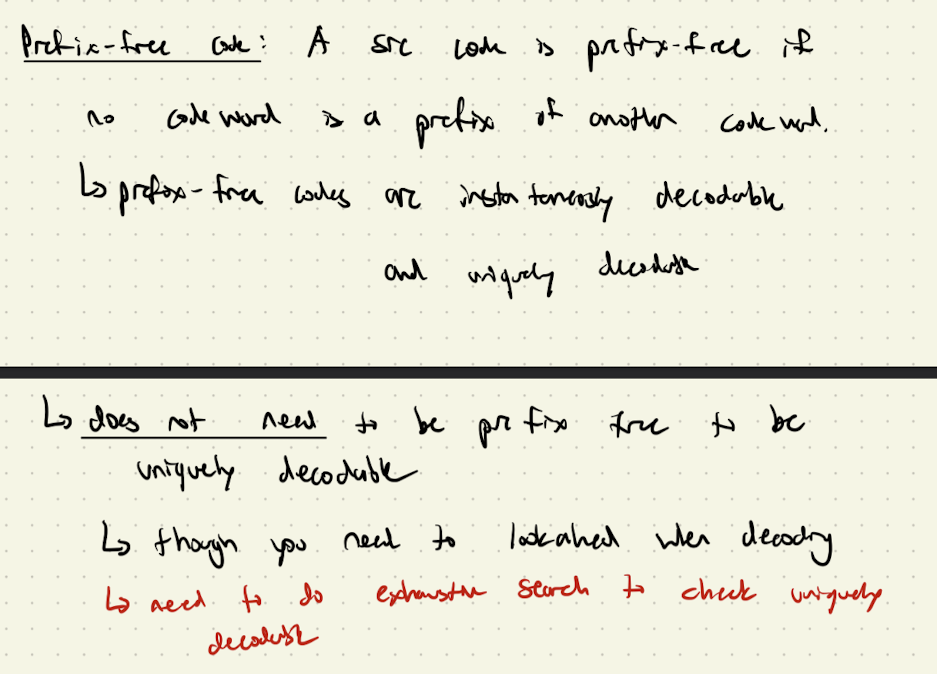 Prefix-free code: A src code is prefix-free if
no codeword is a prefix of another code word.
↳ prefix-free codes are instantaneously decodable
and uniquely decodable
↳ does not need to be prefix free to be
uniquely decodable
↳ though you need to lookahead when decoding
↳ need to do exhaustive search to check uniquely
decodable